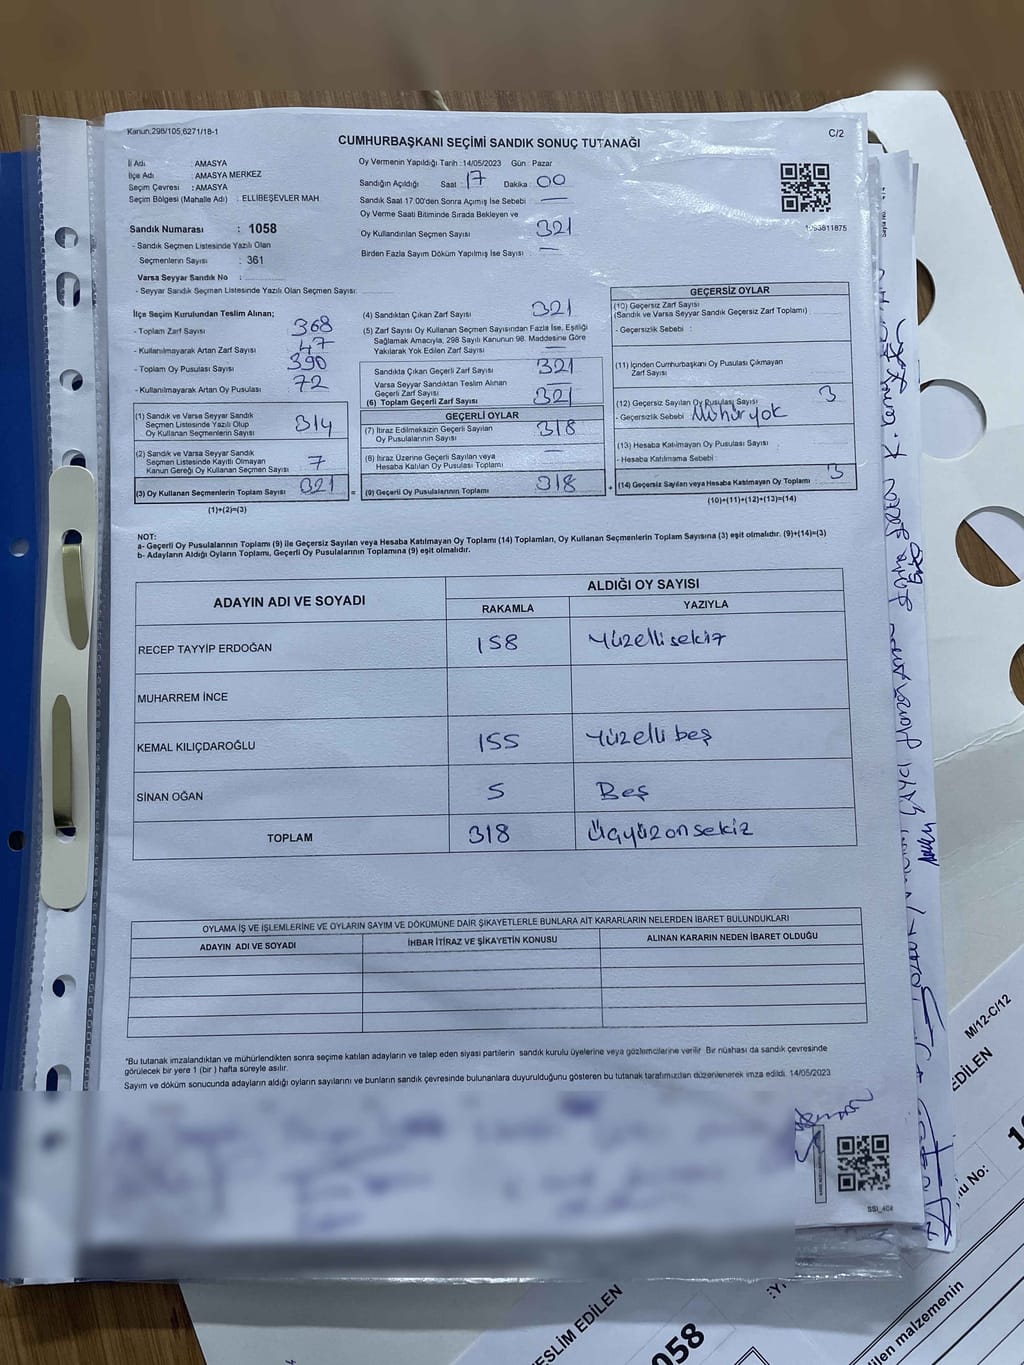 Kanun:298/105,6271/18-1
C/2
CUMHURBAŞKANI SEÇİMİ SANDIK SONUÇ TUTANAĞI
İl Adı : AMASYA
İlçe Adı : AMASYA MERKEZ
Seçim Çevresi : AMASYA
Seçim Bölgesi (Mahalle Adı) : ELLİBEŞEVLER MAH.
Oy Vermenin Yapıldığı Tarih :14/05/2023 Gün : Pazar
Sandığın Açıldığı Saat : 17 Dakika : 00
Sandık Saat 17.00'den Sonra Açımış İse Sebebi : —
Oy Verme Saati Bitiminde Sırada Bekleyen ve
Oy Kullandırılan Seçmen Sayısı 321
Birden Fazla Sayım Döküm Yapılmış İse Sayısı : —
Sandık Numarası : 1058
- Sandık Seçmen Listesinde Yazılı Olan
Seçmenlerin Sayısı : 361
Varsa Seyyar Sandık No :
- Seyyar Sandık Seçmen Listesinde Yazılı Olan Seçmen Sayısı:
İlçe Seçim Kurulundan Teslim Alınan;
- Toplam Zarf Sayısı 368
- Kullanılmayarak Artan Zarf Sayısı 47
- Toplam Oy Pusulası Sayısı 390
- Kullanılmayarak Artan Oy Pusulası 72
(1) Sandık ve Varsa Seyyar Sandık
Seçmen Listesinde Yazılı Olup
Oy Kullanan Seçmenlerin Sayısı 314
(2) Sandık ve Varsa Seyyar Sandık
Seçmen Listesinde Kayıtlı Olmayan
Kanun Gereği Oy Kullanan Seçmen Sayısı 7
(3) Oy Kullanan Seçmenlerin Toplam Sayısı 321 =
(1)+(2)=(3)
(4) Sandıktan Çıkan Zarf Sayısı 321
(5) Zarf Sayısı Oy Kullanan Seçmen Sayısından Fazla İse, Eşitliği
Sağlamak Amacıyla, 298 Sayılı Kanunun 98. Maddesine Göre
Yakılarak Yok Edilen Zarf Sayısı —
Sandıkta Çıkan Geçerli Zarf Sayısı 321
Varsa Seyyar Sandıktan Teslim Alınan
Geçerli Zarf Sayısı —
(6) Toplam Geçerli Zarf Sayısı 321
GEÇERLİ OYLAR
(7) İtiraz Edilmeksizin Geçerli Sayılan
Oy Pusulalarının Sayısı 318
(8) İtiraz Üzerine Geçerli Sayılan veya
Hesaba Katılan Oy Pusulası Toplamı —
(9) Geçerli Oy Pusulalarının Toplamı 318 +
GEÇERSİZ OYLAR
(10) Geçersiz Zarf Sayısı
(Sandık ve Varsa Seyyar Sandık Geçersiz Zarf Toplamı) :
- Geçersizlik Sebebi :
(11) İçinden Cumhurbaşkanı Oy Pusulası Çıkmayan
Zarf Sayısı :
(12) Geçersiz Sayılan Oy Pusulası Sayısı 3
- Geçersizlik Sebebi : Mühür yok
(13) Hesaba Katılmayan Oy Pusulası Sayısı :
- Hesaba Katılmama Sebebi :
(14) Geçersiz Sayılan veya Hesaba Katılmayan Oy Toplamı : 3
(10)+(11)+(12)+(13)=(14)
NOT:
a- Geçerli Oy Pusulalarının Toplamı (9) ile Geçersiz Sayılan veya Hesaba Katılmayan Oy Toplamı (14) Toplamları, Oy Kullanan Seçmenlerin Toplam Sayısına (3) eşit olmalıdır. (9)+(14)=(3)
b- Adayların Aldığı Oyların Toplamı, Geçerli Oy Pusulalarının Toplamına (9) eşit olmalıdır.
ADAYIN ADI VE SOYADI
ALDIĞI OY SAYISI
RAKAMLA YAZIYLA
RECEP TAYYİP ERDOĞAN 158 Yüzelli sekiz
MUHARREM İNCE
KEMAL KILIÇDAROĞLU 155 Yüzelli beş
SİNAN OĞAN 5 Beş
TOPLAM 318 Üçyüz on sekiz
OYLAMA İŞ VE İŞLEMLERİNE VE OYLARIN SAYIM VE DÖKÜMÜNE DAİR ŞİKAYETLERLE BUNLARA AİT KARARLARIN NELERDEN İBARET BULUNDUKLARI
ADAYIN ADI VE SOYADI İHBAR İTİRAZ VE ŞİKAYETİN KONUSU ALINAN KARARIN NEDEN İBARET OLDUĞU
"Bu tutanak imzalandıktan ve mühürlendikten sonra seçime katılan adayların ve talep eden siyasi partilerin sandık kurulu üyelerine veya gözlemcilerine verilir. Bir nüshası da sandık çevresinde
görülecek bir yere 1 (bir ) hafta süreyle asılır.
Sayım ve döküm sonucunda adayların aldığı oyların sayılarını ve bunların sandık çevresinde bulunanlara duyurulduğunu gösteren bu tutanak tarafımızdan düzenlenerek imza edildi. 14/05/2023
M/12-C/12
EDİLEN
No:
ESLİM EDİLEN
058
ilen malzemenin